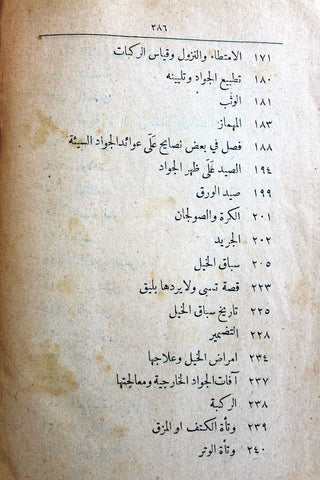 ٢٨٦
١٧١ الامتطاء والنزول وقياس الركبات
١٨٠ تطبيع الجواد وتليينه
١٨١ الوثب
١٨٣ المهماز
١٨٨ فصل في بعض نصايح عَلَى عوائد الجواد السيئة
١٩٤ الصيد عَلَى ظهر الجواد
١٩٩ صيد الورق
٢٠١ الكرة والصولجان
٢٠٢ الجريد
٢٠٥ سباق الخيل
٢٢٣ قصة تنسى ولا يردها بليق
٢٢٥ تاريخ سباق الخيل
٢٢٨ التضمير
٢٣٤ امراض الخيل وعلاجها
٢٣٧ آفات الجواد الخارجية ومعالجتها
٢٣٨ الركبة
٢٣٩ وثأة الكتف او المزق
٢٤٠ وثأة الوتر